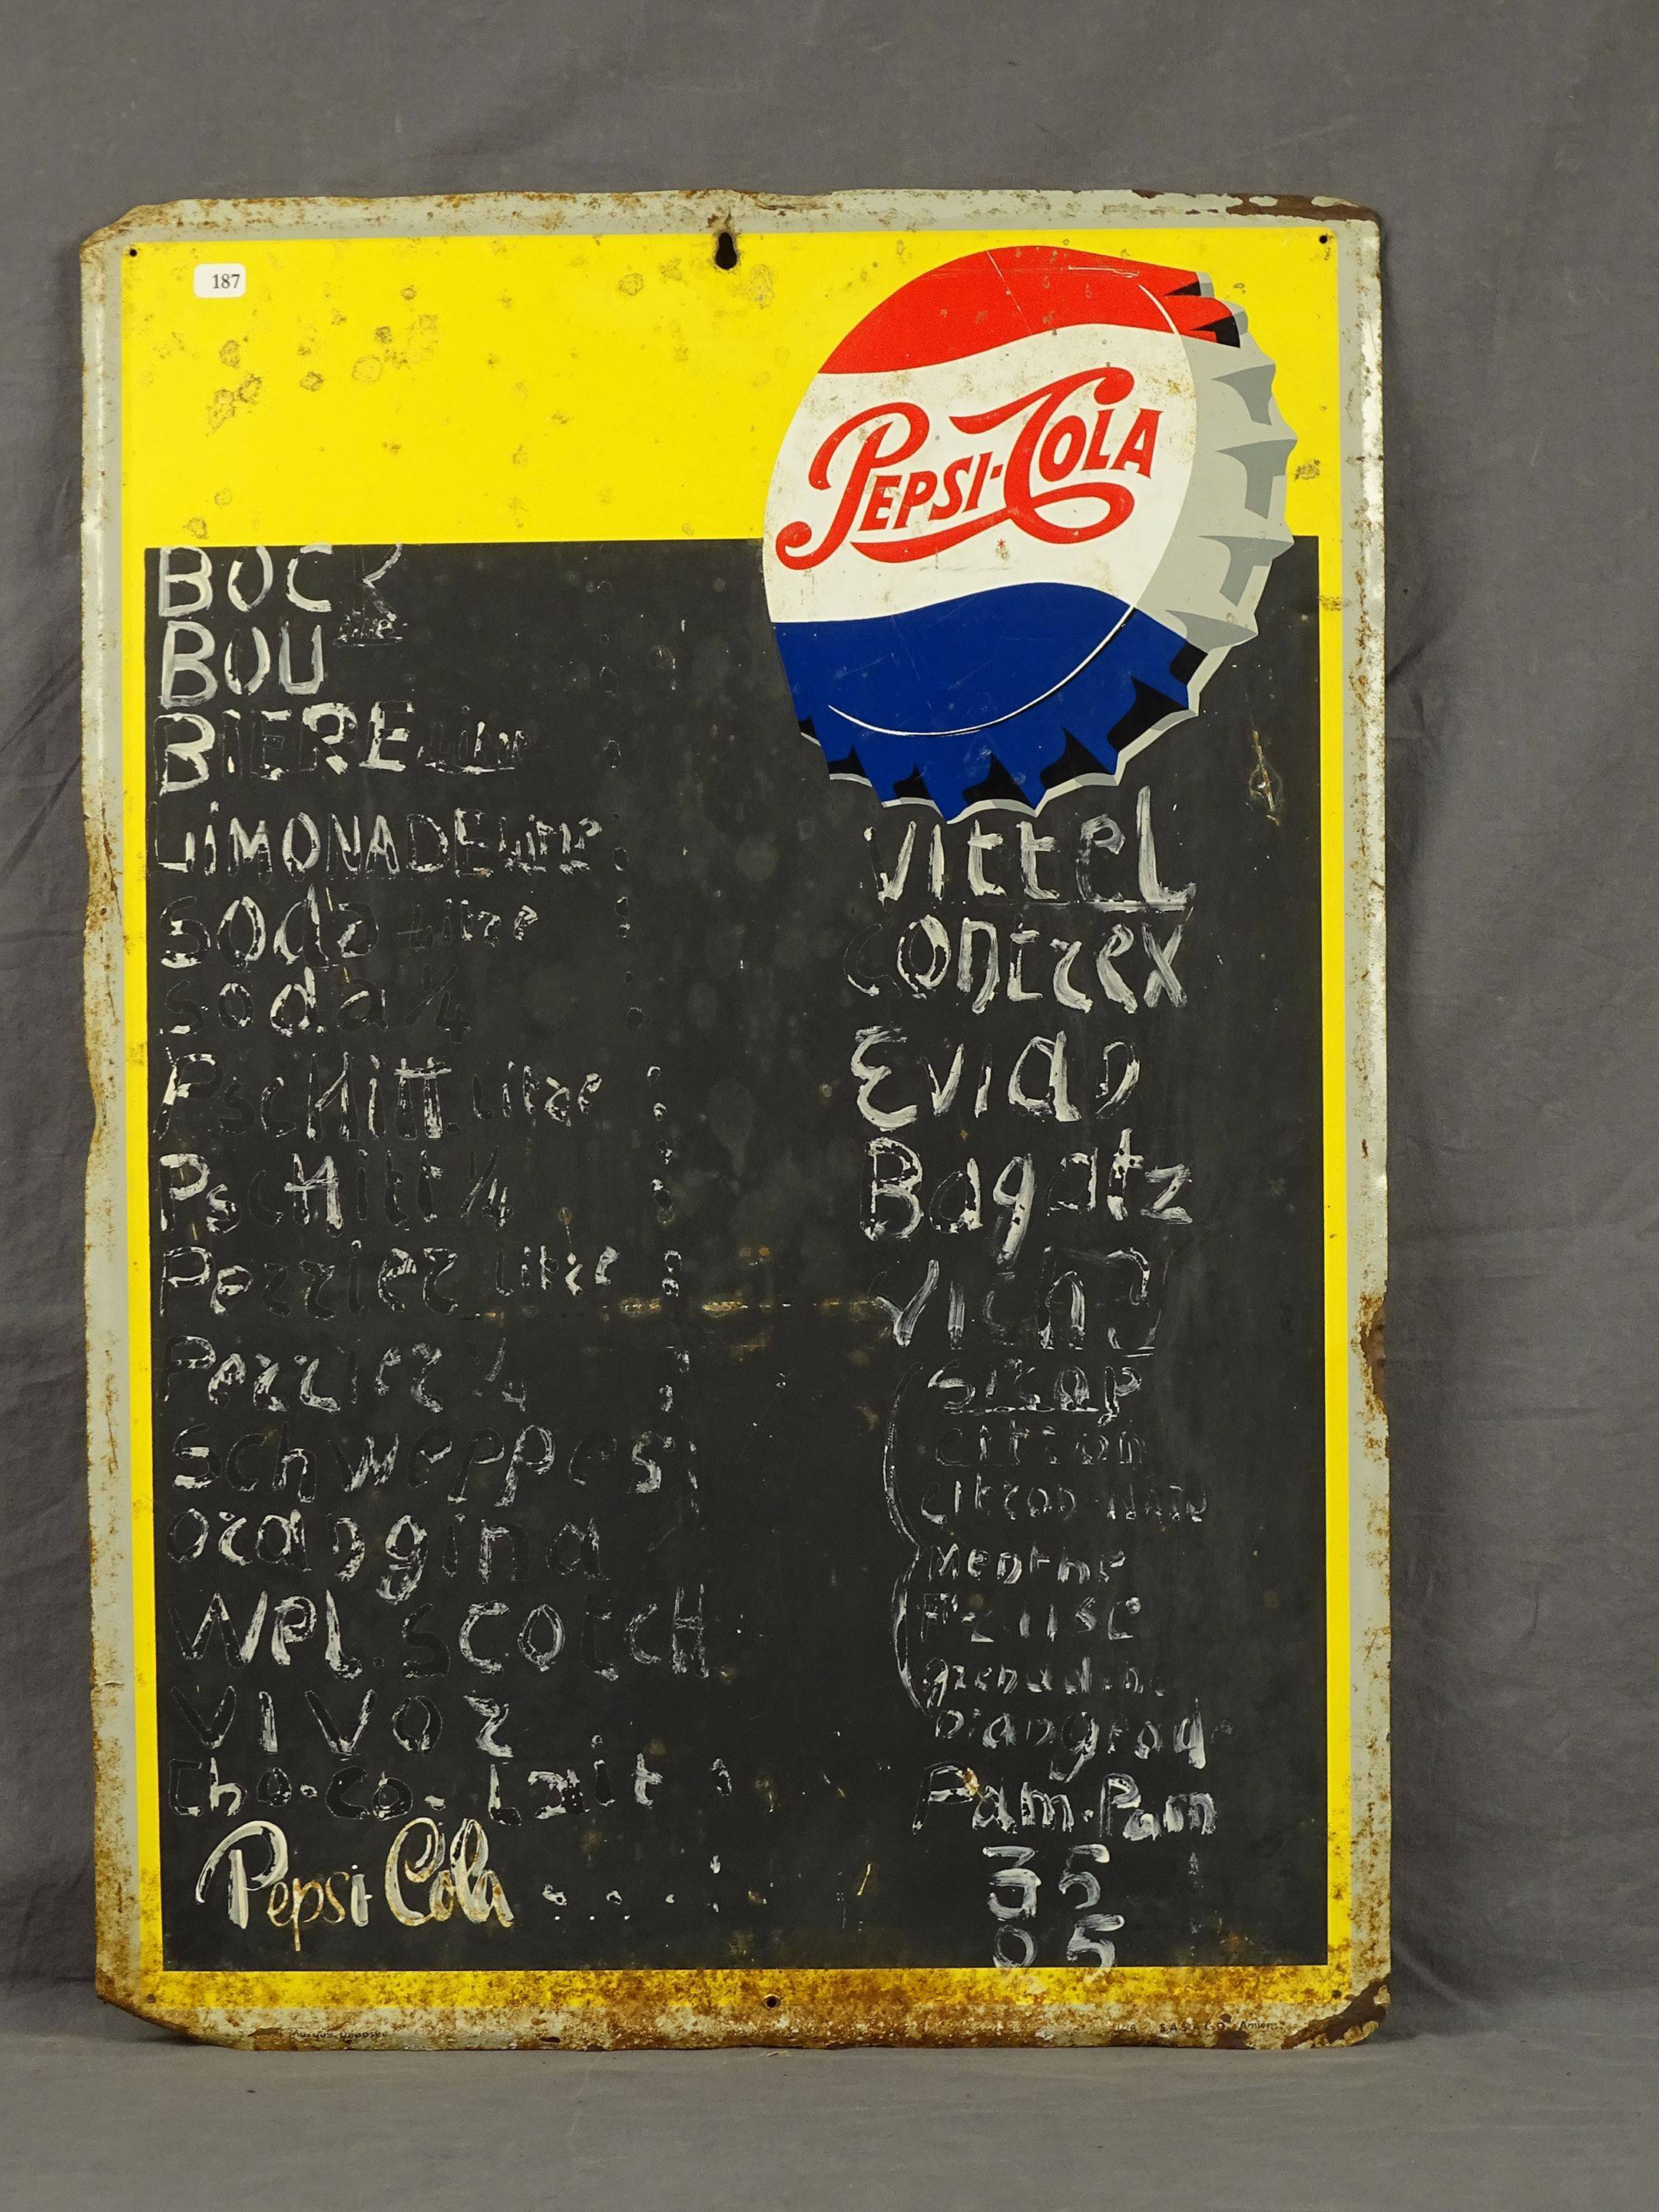 187
PEPSI-COLA
BOCK
BOU
BIERE Litre :
LIMONADE Litre :
Soda Litre :
Soda 1/4 :
PscHitt Litre :
PscHitt 1/4 :
Perrier Litre :
Perrier 1/4 :
Schweppes :
orangina
Wel.scotcH
VIVOR
cho-co-Lait :
Pepsi Cola . . . :
Vittel
contrex
Evian
Bagatz
vichy
Sirop
citron
citron
Menthe
Fraise
grenadine
orangeade
Pam-Pam
35
05
Marque déposée
Amiens